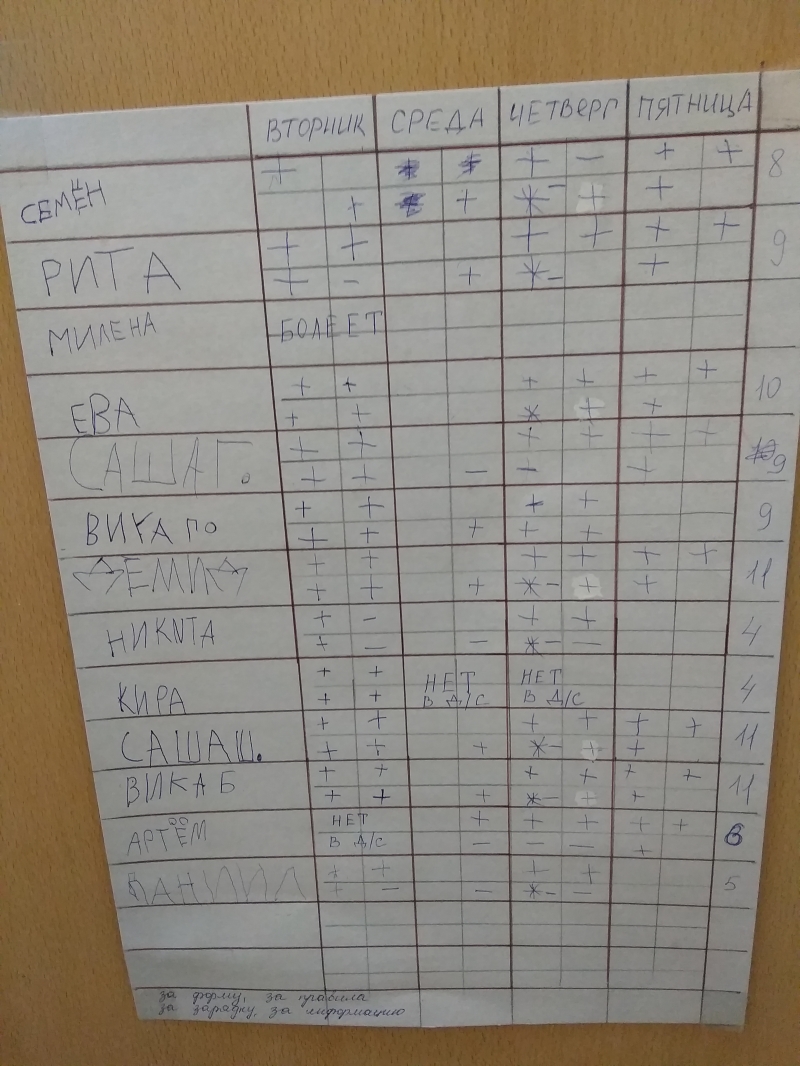 ВТОРНИК СРЕДА ЧЕТВЕРГ ПЯТНИЦА
+ * * + – + + 8
СЕМЁН + * + *– + +
+ + + + + + 9
РИТА + – + *– +
МИЛЕНА БОЛЕЕТ
+ + + + + + 10
ЕВА + + * + +
+ + + + + +
САША Г. + + – – + 9
+ + + + 9
ВИКА ГО + + + + +
+ + + + + + 11
ДЕМИД + + + *– + +
+ – + + 4
НИКИТА + – – *– –
+ + НЕТ НЕТ 4
КИРА + + В Д/С В Д/С
+ + + + + + 11
САША Ш. + + + *– + +
+ + + + + + 11
ВИКА Б + + + *– + +
НЕТ + + + + + 6
АРТЁМ В Д/С – – – +
+ + + + 5
ДАНИИЛ + – – *– –
за форму, за правила
за зарядку, за информацию